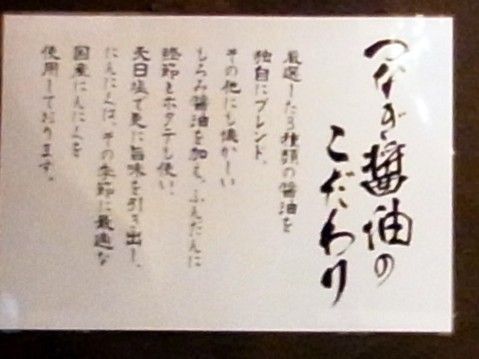 つなぎ醤油の
こだわり
厳選した3種類の醤油を
独自にブレンド。
その他にも懐かしい
もろみ醤油を加え、ふんだんに
鰹節とホタテも使い、
天日塩で更に旨味を引き出し、
にんにくは、その季節に最適な
国産にんにくを
使用しております。